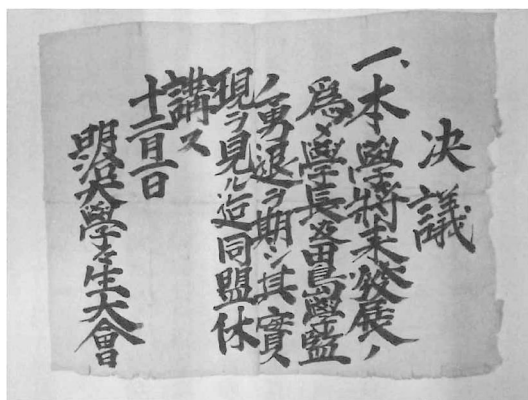 決議
一、本學將来發展ノ
爲メ學長並田島學監
ノ勇退ヲ期シ其實
現ヲ見ル迄同盟休
講ス
十二月一日
明治大學々生大會